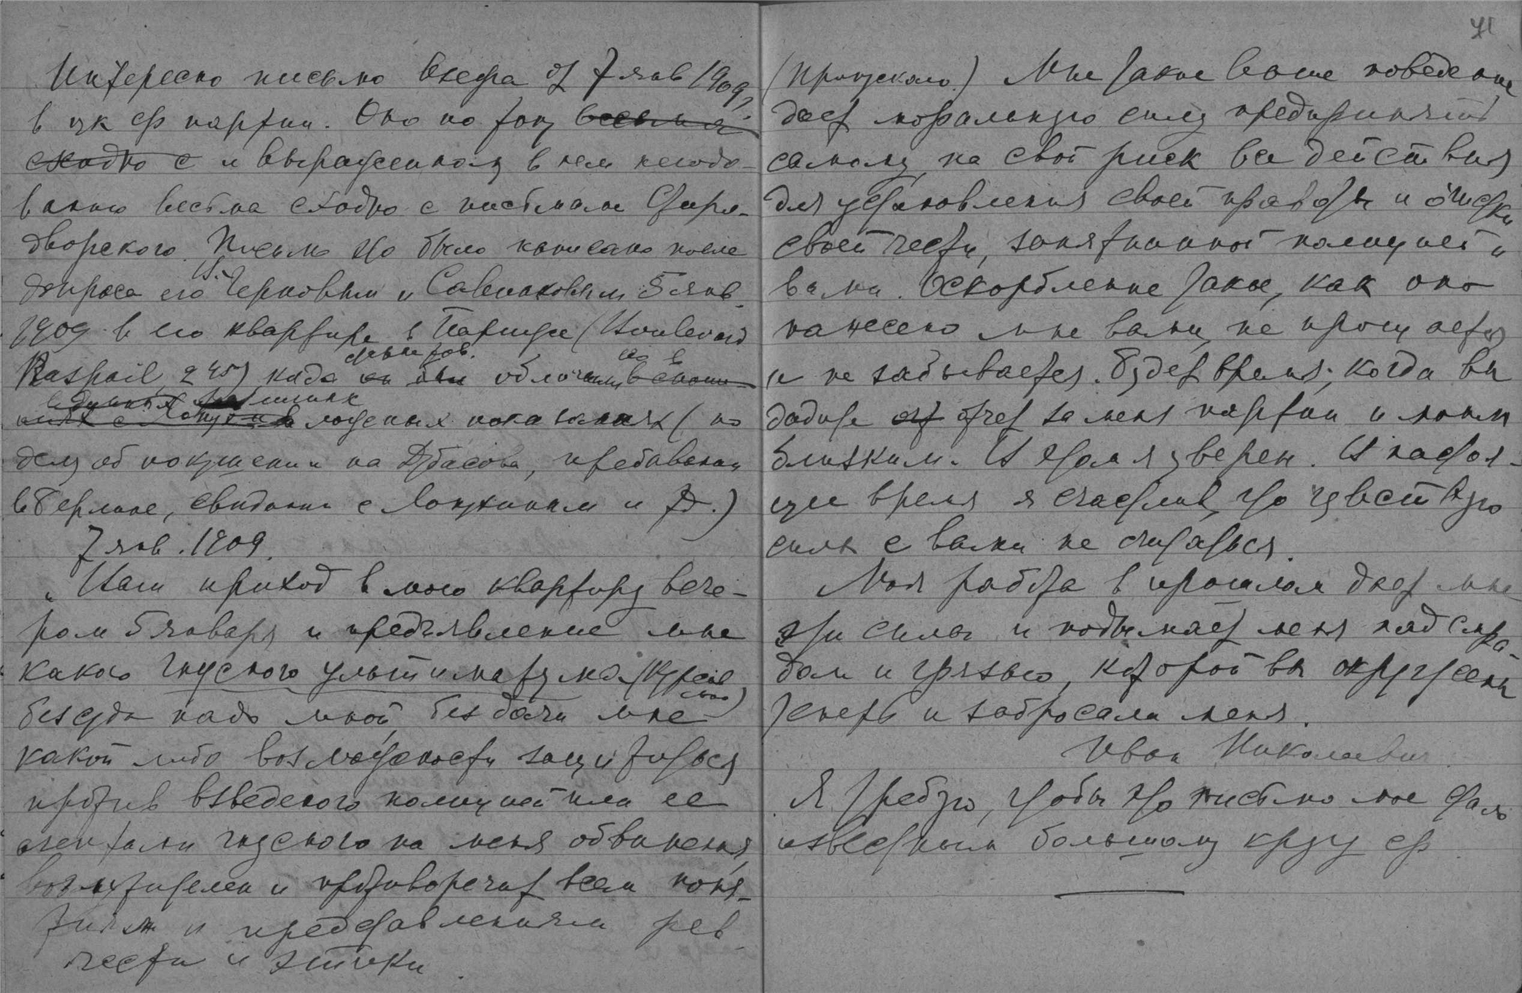 Интересно письмо Азефа от 7 янв 1909,
в цк ср партии. Оно по тону весьма
сходно с и выраженному в нем негодо-
ванию весьма сходно с письмами Старо-
дворского. Письмо это было написано после
допроса его Черновым и Савинковым 5 янв.
1909 в его квартире в Париже (Boulevard
Raspail, 245) когда он был обличен
ложных показаниях (по
делу об покушении на Дубасова, пребывании
в Берлине, свидании с Лопухиным и т.д.)
7 янв. 1909.
„Ваш приход в мою квартиру вече-
ром 5 января и предъявление мне
какого гнусного ультиматума (Курсив
мой)
без суда надо мной, без дачи мне
какой либо возможности защититься
против взведеного полицией или ее
агентами гнусного на меня обвинения,
возмутителен и противоречит всем поня-
тиям и представлениям рев.
чести и этики.
71
(Пропускаю.) Мне такое ваше поведение
дает моральную силу предпринять
самому, на свой риск все действия
для установления своей правоты и очистки
своей чести, запятнанной полицией и
вами. Оскорбление такое, как оно
нанесено мне вами, не прощается
и не забывается. Будет время, когда вы
дадите от отчет за меня партии и моим
близким. В этом я уверен. В настоя-
щее время я счастлив, что чувствую
силы с вами не считаться.
Моя работа в прошлом дает мне
эти силы и подымает меня над смра-
дом и грязью, которой вы окружены
теперь и забросали меня.
Иван Николаевич.
Я требую, чтобы это письмо мое стало
известным большому кругу ср